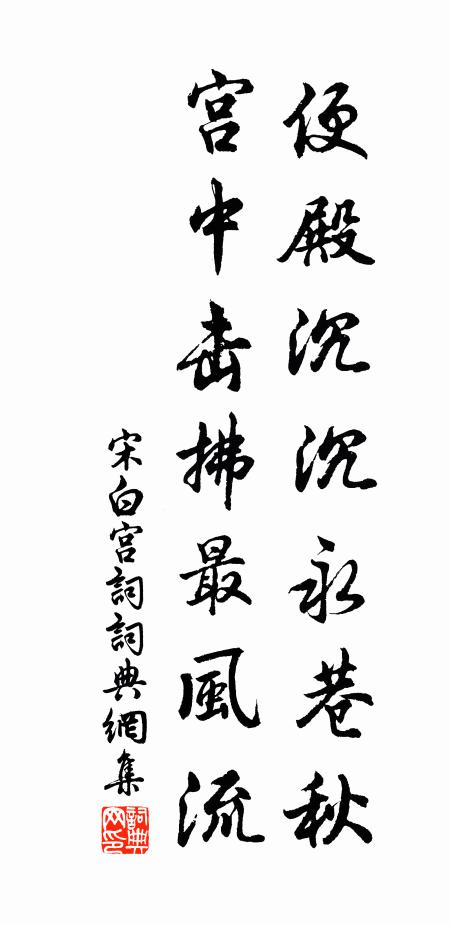 便殿沉沉永巷秋
宮中击拂最風流
宋白宮詞詞典網集
詞典
网印